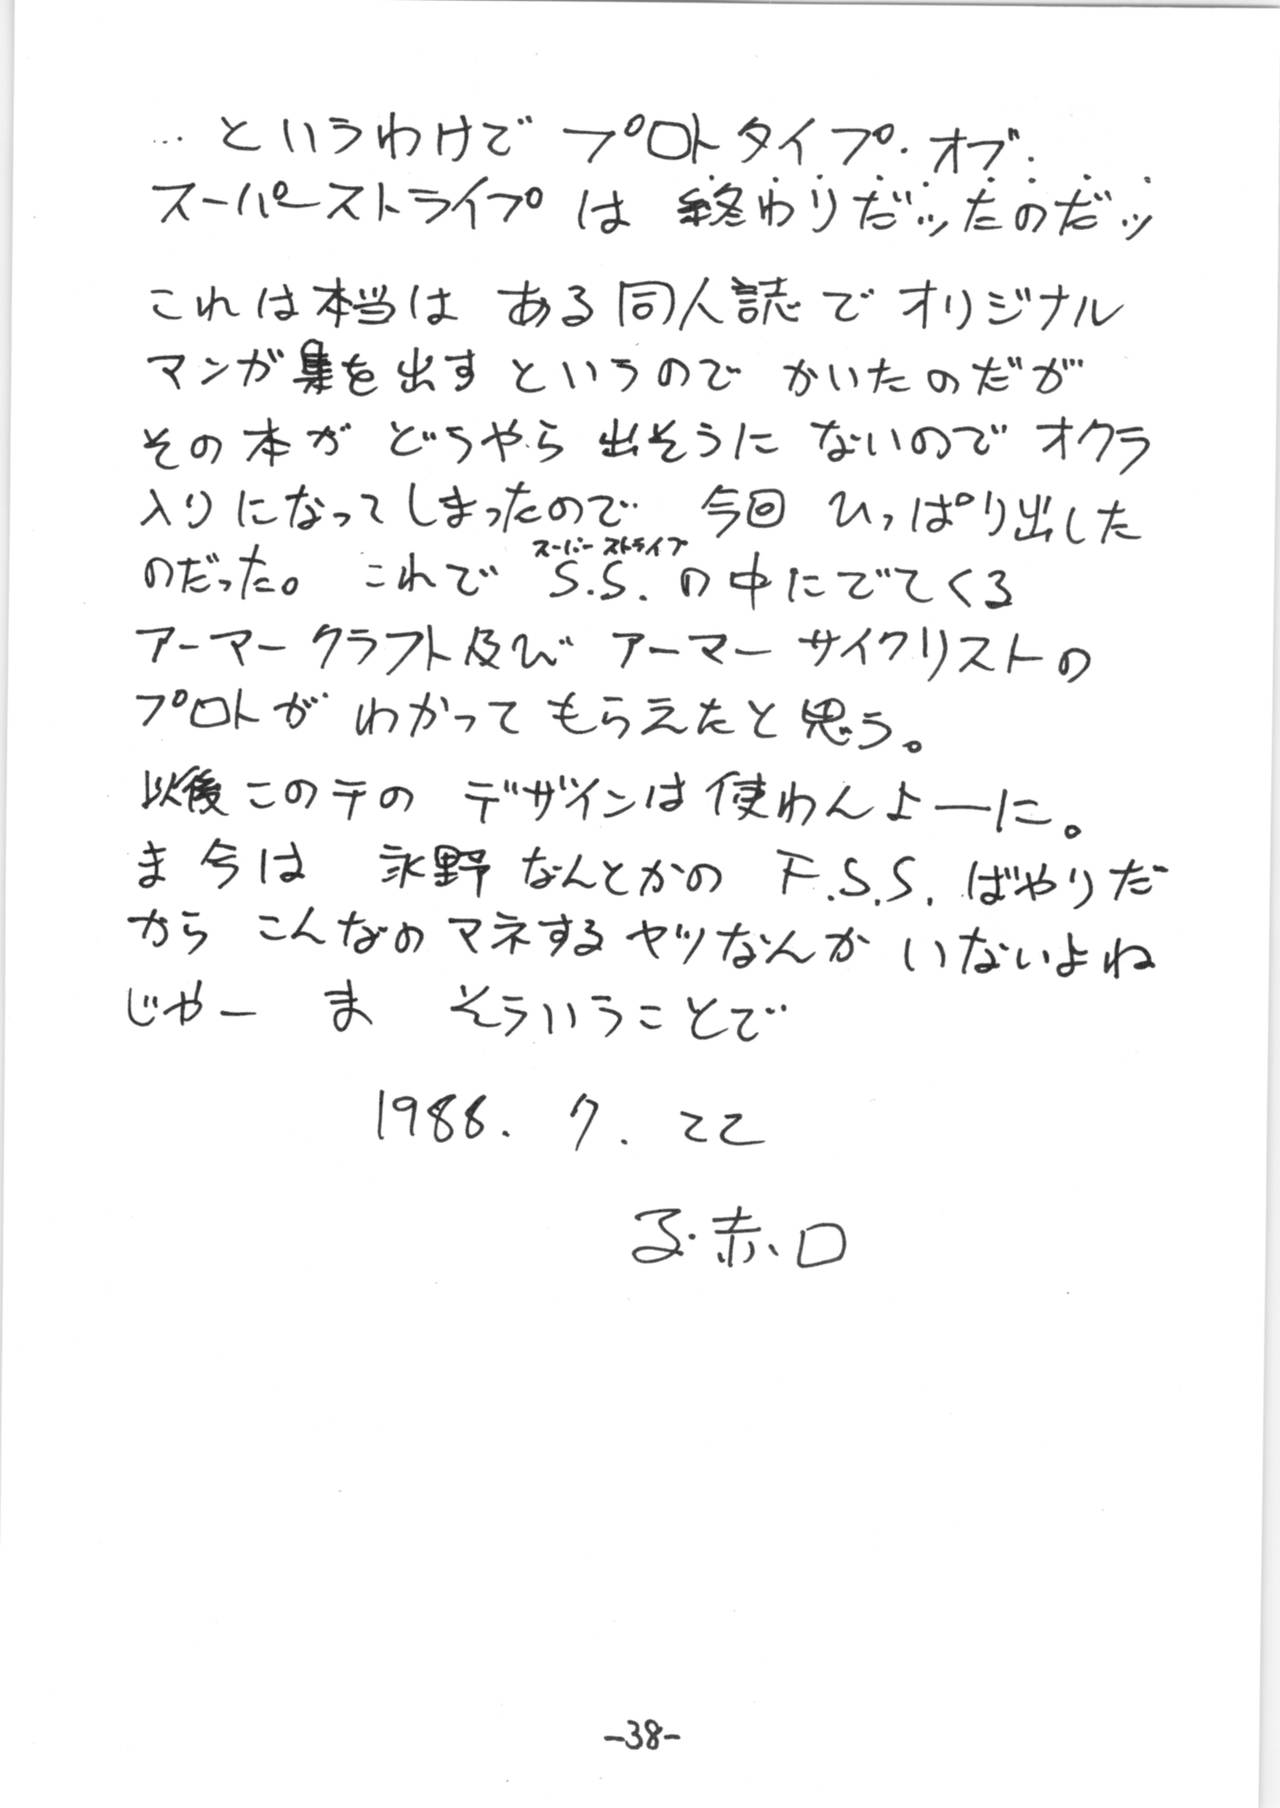 … というわけで プロトタイプ・オブ・
スーパーストライプ は 終わりだッたのだッ
これは本当は ある同人誌で オリジナル
マンガ集を出すというので かいたのだが
その本が どうやら 出そうに ないので オクラ
入りになってしまったので 今回 ひっぱり出した
スーパーストライプ
のだった。 これで S.S. の中にでてくる
アーマークラフト及び アーマーサイクリストの
プロトが わかって もらえたと思う。
以後このテの デザインは使わんよーに。
ま今は 永野なんとかの F.S.S. ばやりだ
から こんなのマネするヤツなんか いないよね
じゃー ま そういうことで
1988. 7. 22
る・赤・ロ
-38-